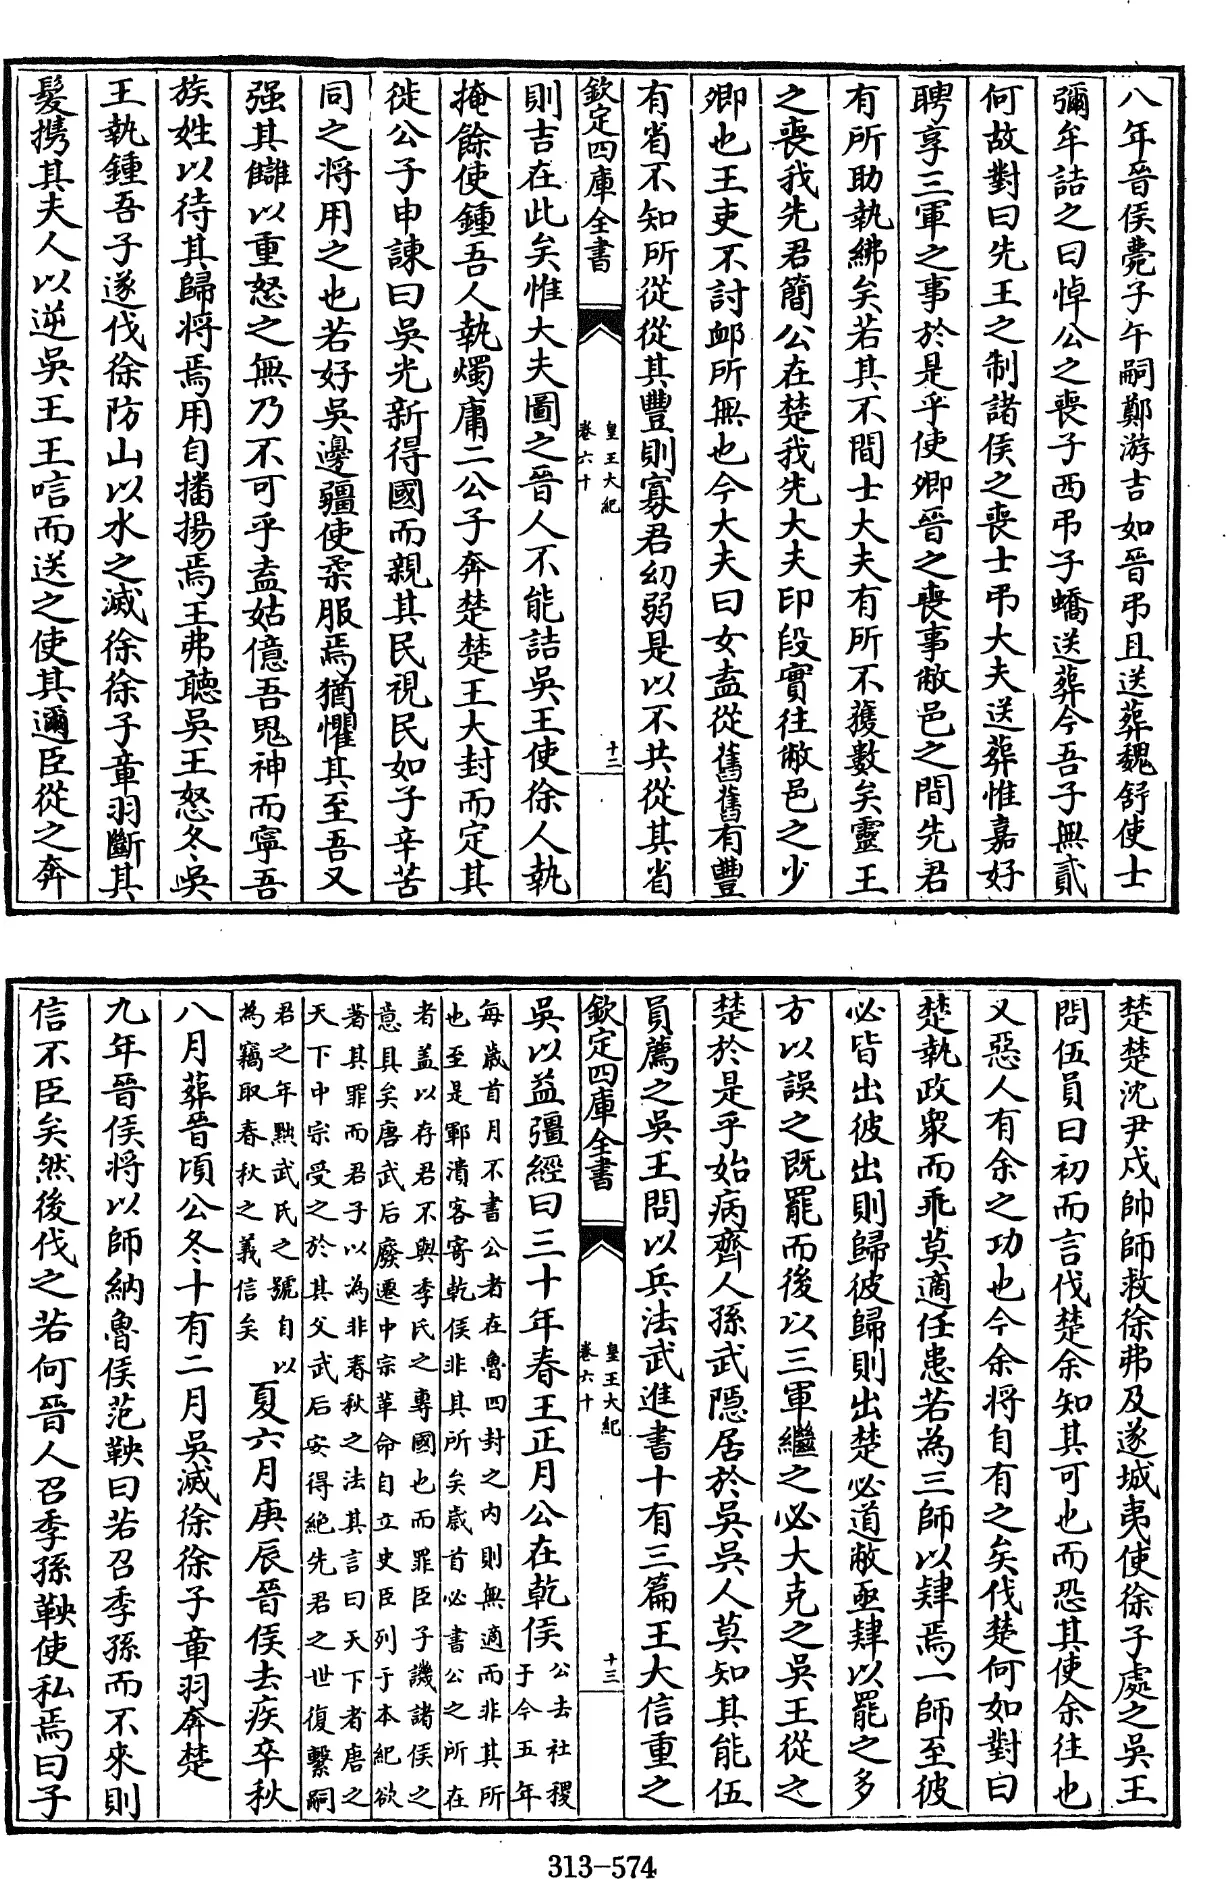 八年晉侯薨子午嗣鄭游吉如晉弔且送葬魏舒使士
彌牟詰之曰悼公之喪子西弔子蟜送葬今吾子無貳
何故對曰先王之制諸侯之喪士弔大夫送葬惟嘉好
聘享三軍之事於是乎使卿晉之喪事敝邑之間先君
有所助執紼矣若其不間士大夫有所不獲數矣靈王
之喪我先君簡公在楚我先大夫印段實往敝邑之少
卿也王吏不討䘏所無也今大夫曰女盍從舊舊有豐
有省不知所從從其豐則寡君幼弱是以不共從其省
欽定四庫全書
皇王大紀
卷六十
十二
則吉在此矣惟大夫圖之晉人不能詰吳王使徐人執
掩餘使鍾吾人執燭庸二公子奔楚楚王大封而定其
徙公子申諫曰吳光新得國而親其民視民如子辛苦
同之將用之也若好吳邊疆使柔服焉猶懼其至吾又
强其讎以重怒之無乃不可乎盍姑億吾鬼神而寧吾
族姓以待其歸將焉用自播揚焉王弗聽吳王怒冬吳
王執鍾吾子遂伐徐防山以水之滅徐徐子章羽斷其
髮攜其夫人以逆吳王王唁而送之使其邇臣從之奔
楚楚沈尹戍帥師救徐弗及遂城夷使徐子處之吳王
問伍員曰初而言伐楚余知其可也而恐其使余往也
又惡人有余之功也今余將自有之矣伐楚何如對曰
楚執政衆而乖莫適任患若為三師以肄焉一師至彼
必皆出彼出則歸彼歸則出楚必道敝亟肄以罷之多
方以誤之既罷而後以三軍繼之必大克之吳王從之
楚於是乎始病齊人孫武隱居於吳吳人莫知其能伍
員薦之吳王問以兵法武進書十有三篇王大信重之
欽定四庫全書
皇王大紀
卷六十
十三
吳以益彊經曰三十年春王正月公在乾侯公去社稷于今五年
每歲首月不書公者在魯四封之内則無適而非其所
也至是鄆潰客寄乾侯非其所矣歲首必書公之所在
者盖以存君不與季氏之專國也而罪臣子譏諸侯之
意具矣唐武后廢遷中宗革命自立史臣列于本紀欲
著其罪而君子以為非春秋之法其言曰天下者唐之
天下中宗受之於其父武后安得絶先君之世復繫嗣
君之年黜武氏之號自以
為竊取春秋之義信矣夏六月庚辰晉侯去疾卒秋
八月葬晉頃公冬十有二月吳滅徐徐子章羽奔楚
九年晉侯將以師納魯侯范鞅曰若召季孫而不來則
信不臣矣然後伐之若何晉人召季孫鞅使私焉曰子
313-574